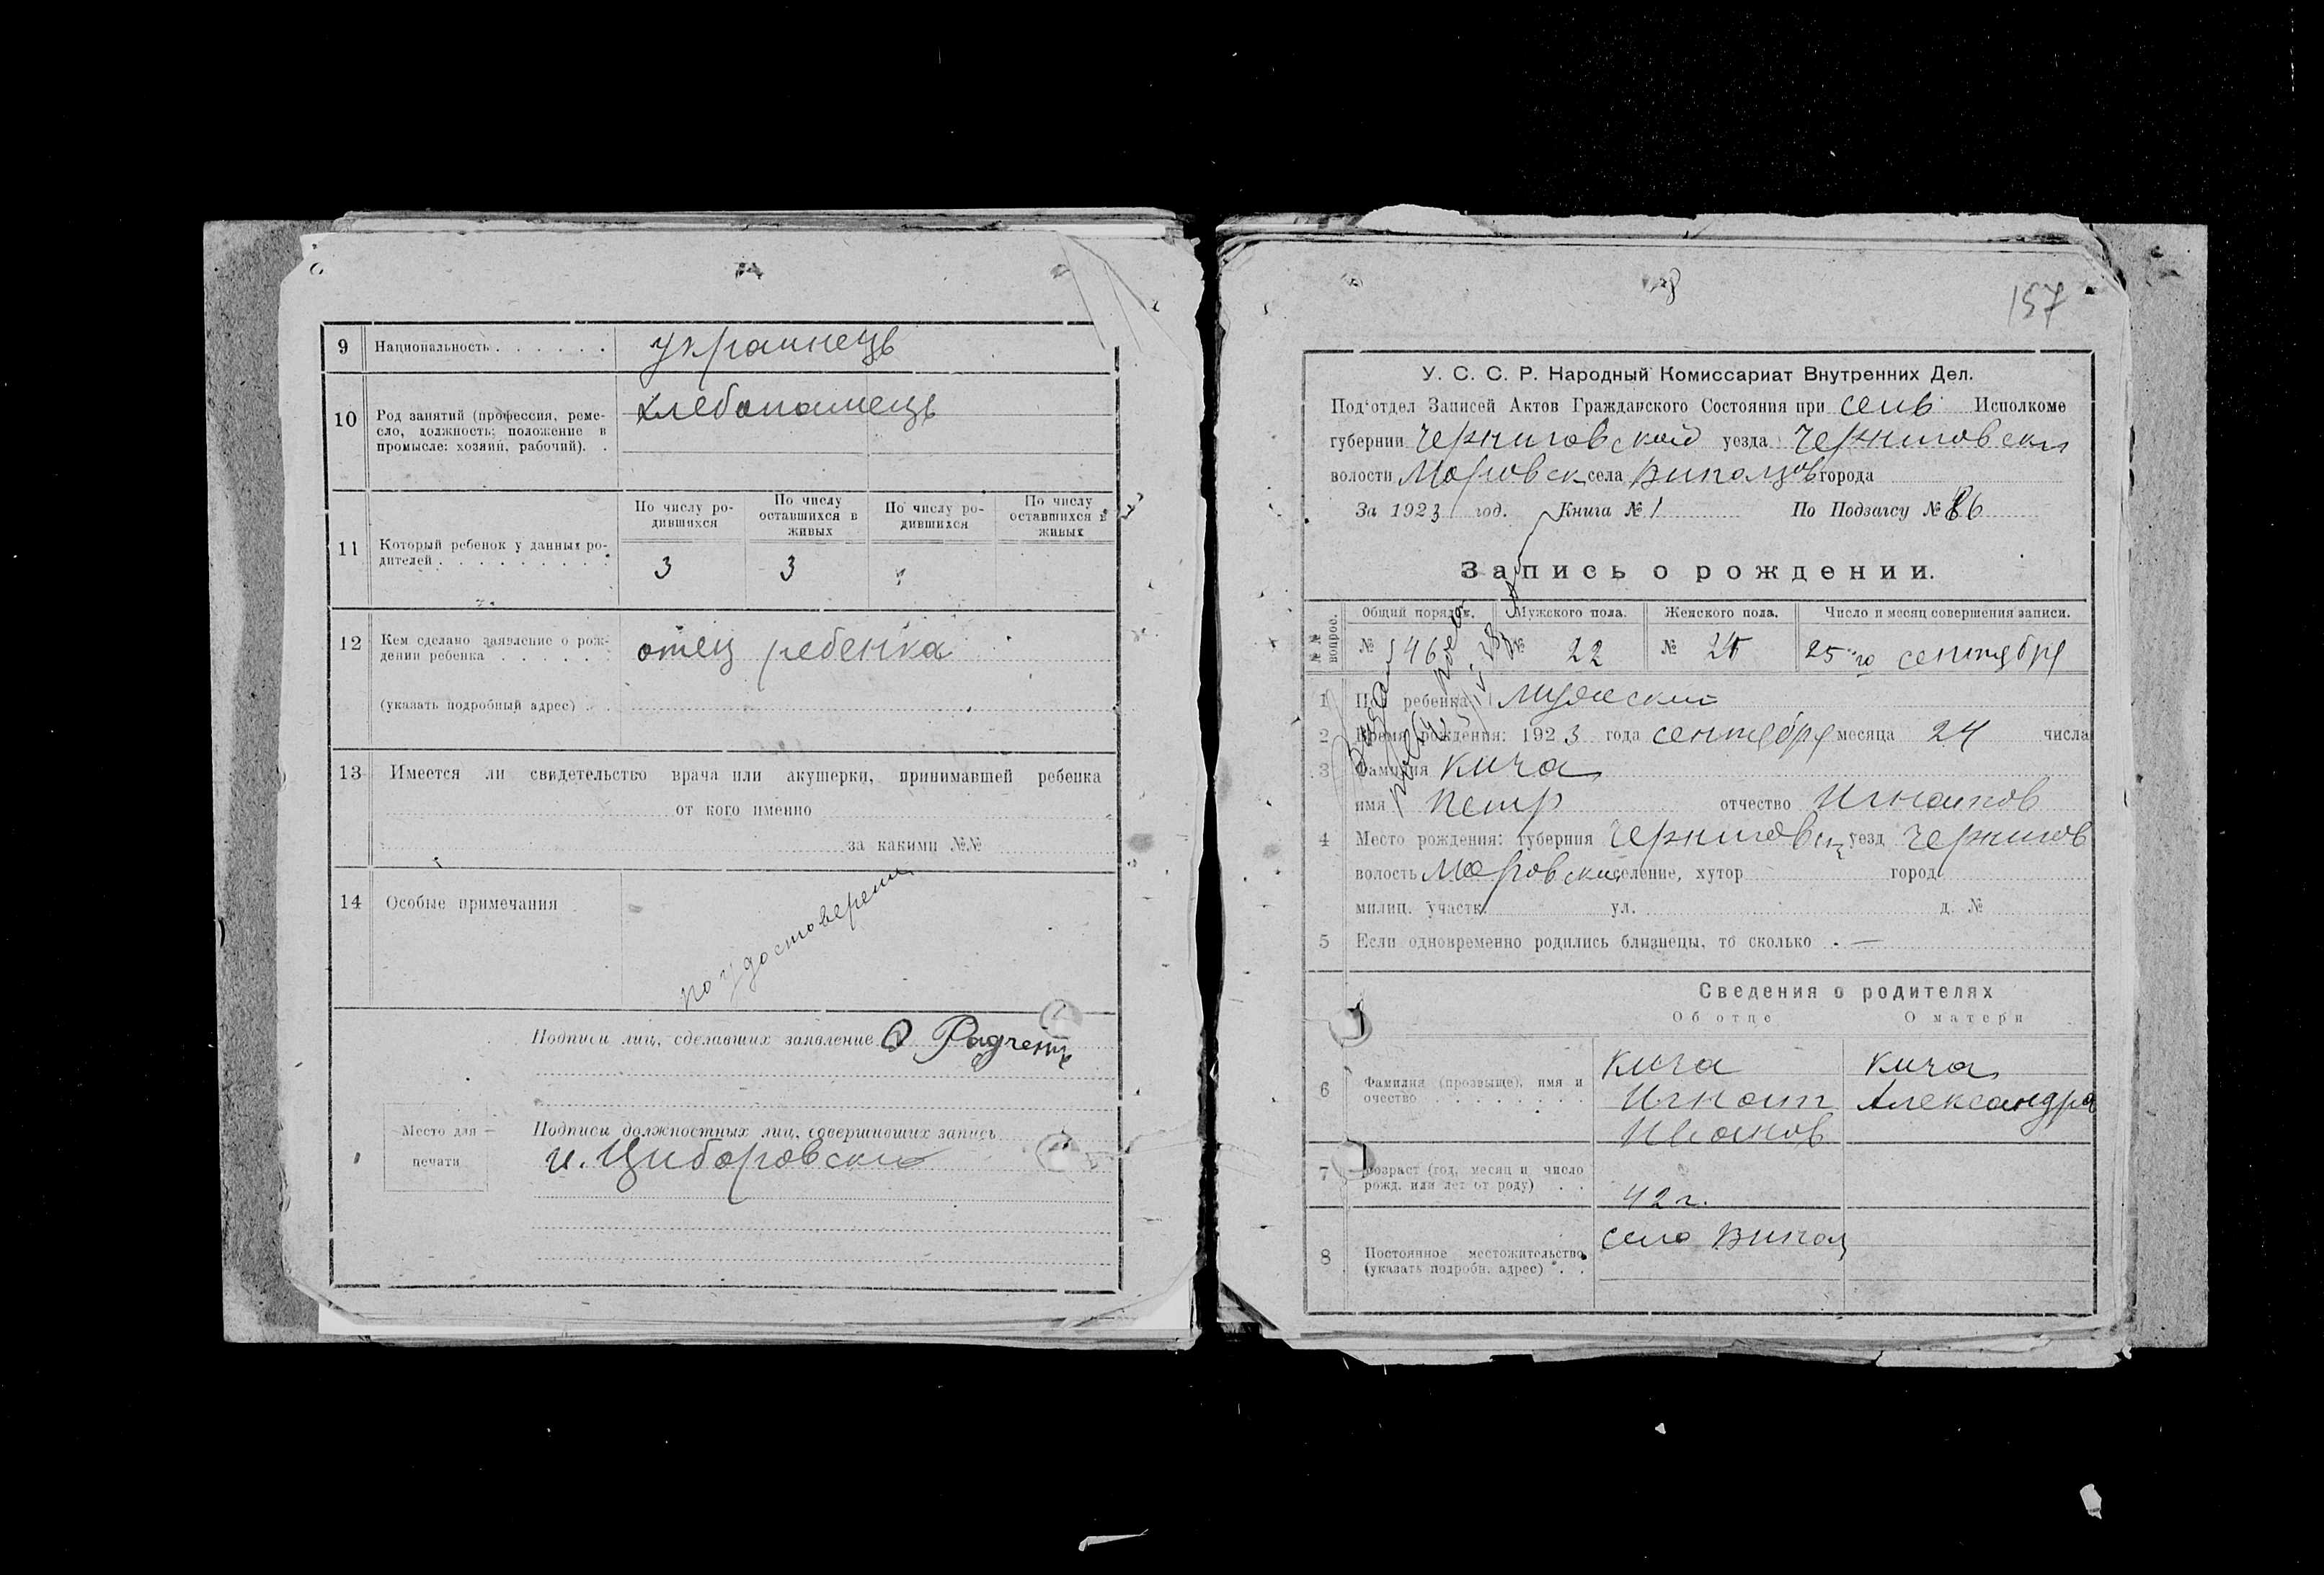 9 Национальность . . . . . . украинець
10 Род занятий (профессия, реме-
сло, должность; положение в
промысле: хозяин, рабочий). .
хлебопашець
По числу ро-
дившихся
По числу
оставшихся в
живых
По числу ро-
дившихся
По числу
оставшихся в
живых
11 Который ребенок у данных ро-
дителей . . . . . . . . .
3 3
12 Кем сделано заявление о рож-
дении ребенка . . . . . .
отец ребенка
(указать подробный адрес) . .
13 Имеется ли свидетельство врача или акушерки, принимавшей ребенка
от кого именно
за какими №№
14 Особые примечания
по удостоверении
Подписи лиц, сделавших заявление О Радченть
Место для
печати
Подписи должностных лиц, совершивших запись
и. Циборовски
157
У. С. С. Р. Народный Комиссариат Внутренних Дел.
Под'отдел Записей Актов Гражданского Состояния при сель Исполкоме
губернии Черниговской уезда Черниговски
волости Моровск села Виползов города
За 1923 год. Книга № 1 По Подзагсу № 86
Запись о рождении.
№№ вопрос.
Общий порядок. Мужского пола. Женского пола. Число и месяц совершения записи.
№ 46 № 22 № 24 25 го сентября
1 Пол ребенка Мужески
2 Время рождения: 1923 года сентября месяца 24 числа
3 Фамилия Кича
имя Петр отчество Игнатов
4 Место рождения: губерния Черниговск уезд Чернигов
волость Моровски селение, хутор город
милиц. участк. ул. д. №
5 Если одновременно родились близнецы, то сколько . —
Сведения о родителях
Об отце О матери
6 Фамилия (прозвыще), имя и
очество . . . . . . . .
Кича Кича
Игнат Александра
Иванов
7 Возраст (год, месяц и число
рожд. или лет от роду) . .
42 г.
8 Постоянное местожительство
(указать подробн. адрес) . .
село Випол